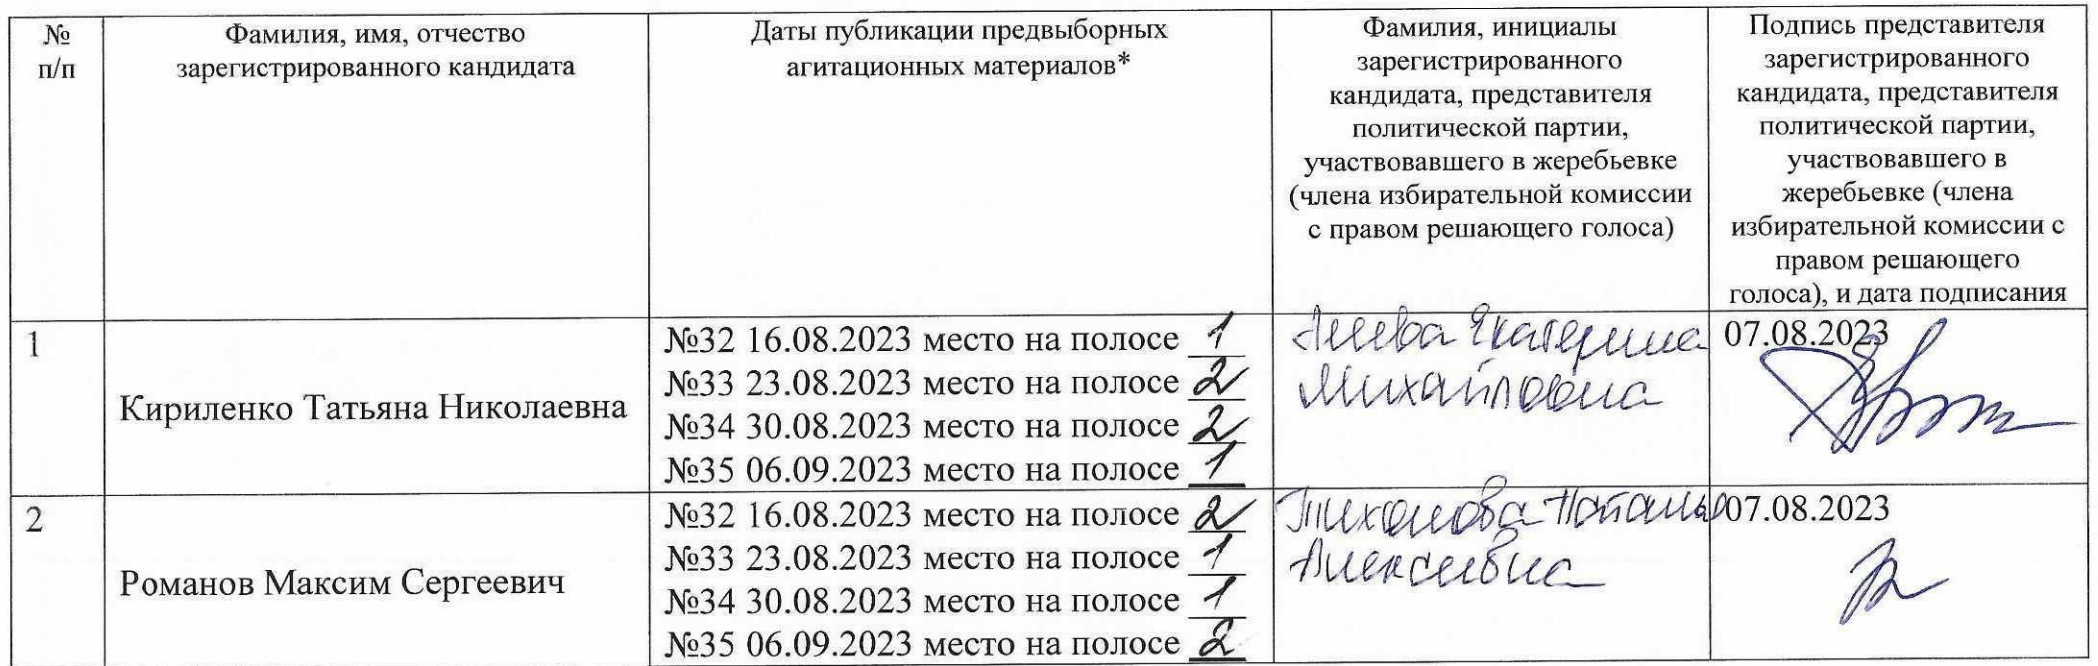 №
п/п
Фамилия, имя, отчество
зарегистрированного кандидата
Даты публикации предвыборных
агитационных материалов*
Фамилия, инициалы
зарегистрированного
кандидата, представителя
политической партии,
участвовавшего в жеребьевке
(члена избирательной комиссии
с правом решающего голоса)
Подпись представителя
зарегистрированного
кандидата, представителя
политической партии,
участвовавшего в
жеребьевке (члена
избирательной комиссии с
правом решающего
голоса), и дата подписания
1
Кириленко Татьяна Николаевна
№32 16.08.2023 место на полосе 1
№33 23.08.2023 место на полосе 2
№34 30.08.2023 место на полосе 2
№35 06.09.2023 место на полосе 1
Екатерина
Михайловна
07.08.2023
2
Романов Максим Сергеевич
№32 16.08.2023 место на полосе 2
№33 23.08.2023 место на полосе 1
№34 30.08.2023 место на полосе 1
№35 06.09.2023 место на полосе 2
Тихонова Наталья
Алексеевна
07.08.2023